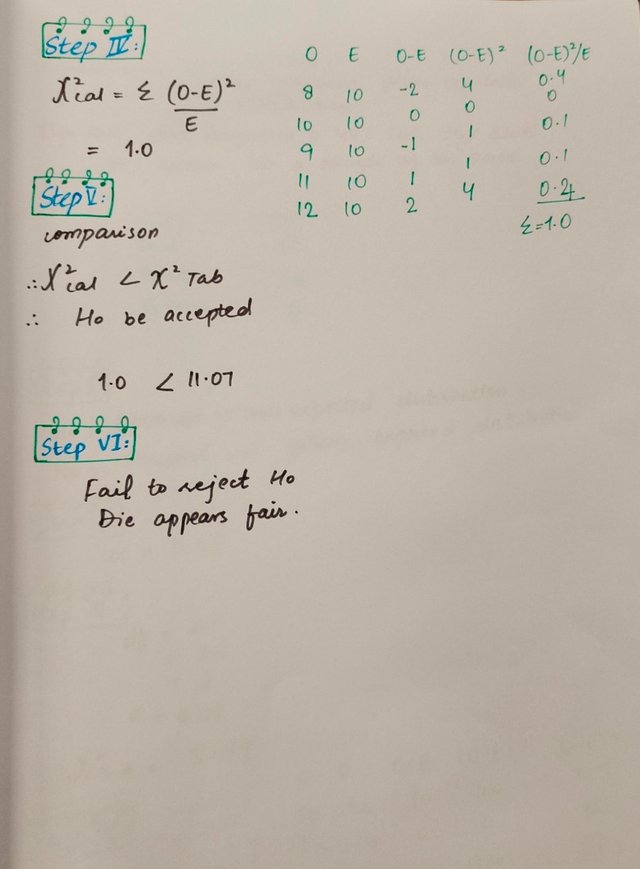 Step IV:
O E O-E (O-E)² (O-E)²/E
8 10 -2 4 0.4
10 10 0 0 0
9 10 -1 1 0.1
11 10 1 1 0.1
12 10 2 4 0.4
Σ=1.0
χ²cal = Σ (O-E)²/E
= 1.0
Step V:
comparison
∴ χ²cal < χ² Tab
∴ Ho be accepted
1.0 < 11.07
Step VI:
Fail to reject Ho
Die appears fair.